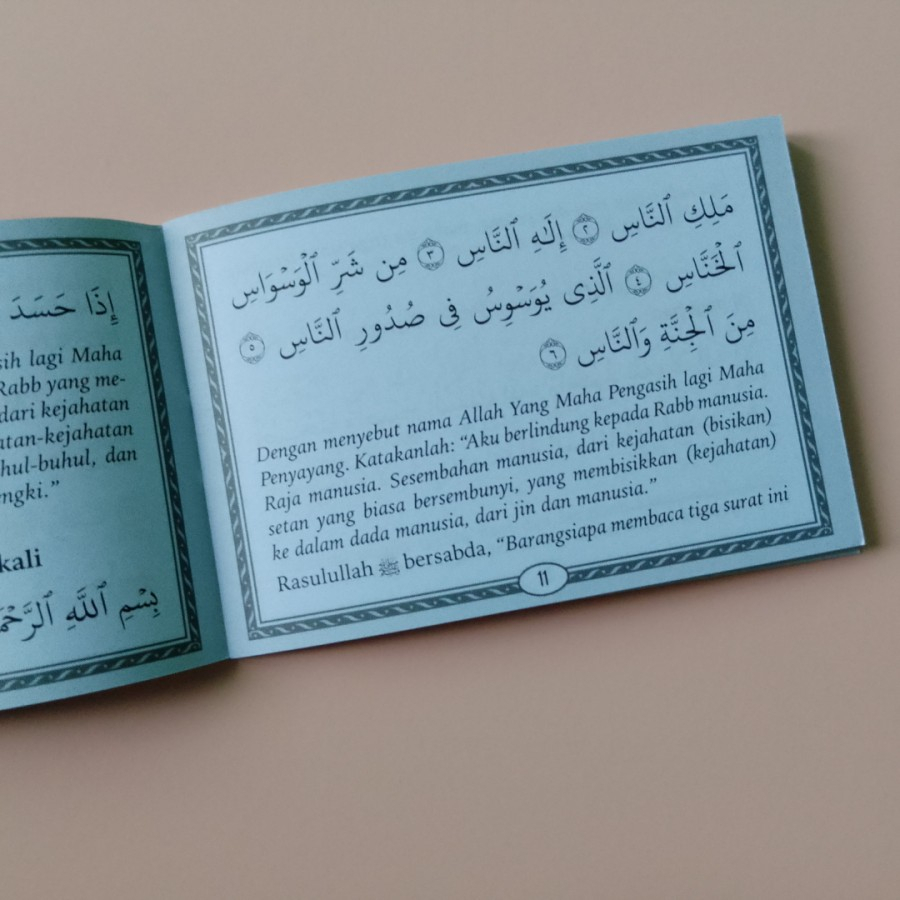 إِذَا حَسَدَ
sih lagi Maha
Rabb yang me-
dari kejahatan
atan-kejahatan
hul-buhul, dan
engki.”
kali
بِسْمِ ٱللَّهِ ٱلرَّحْمَ
مَلِكِ ٱلنَّاسِ ۝٢ إِلَـٰهِ ٱلنَّاسِ ۝٣ مِن شَرِّ ٱلْوَسْوَاسِ
ٱلْخَنَّاسِ ۝٤ ٱلَّذِى يُوَسْوِسُ فِى صُدُورِ ٱلنَّاسِ ۝٥
مِنَ ٱلْجِنَّةِ وَٱلنَّاسِ ۝٦
Dengan menyebut nama Allah Yang Maha Pengasih lagi Maha
Penyayang. Katakanlah: “Aku berlindung kepada Rabb manusia.
Raja manusia. Sesembahan manusia, dari kejahatan (bisikan)
setan yang biasa bersembunyi, yang membisikkan (kejahatan)
ke dalam dada manusia, dari jin dan manusia.”
Rasulullah ﷺ bersabda, “Barangsiapa membaca tiga surat ini
11